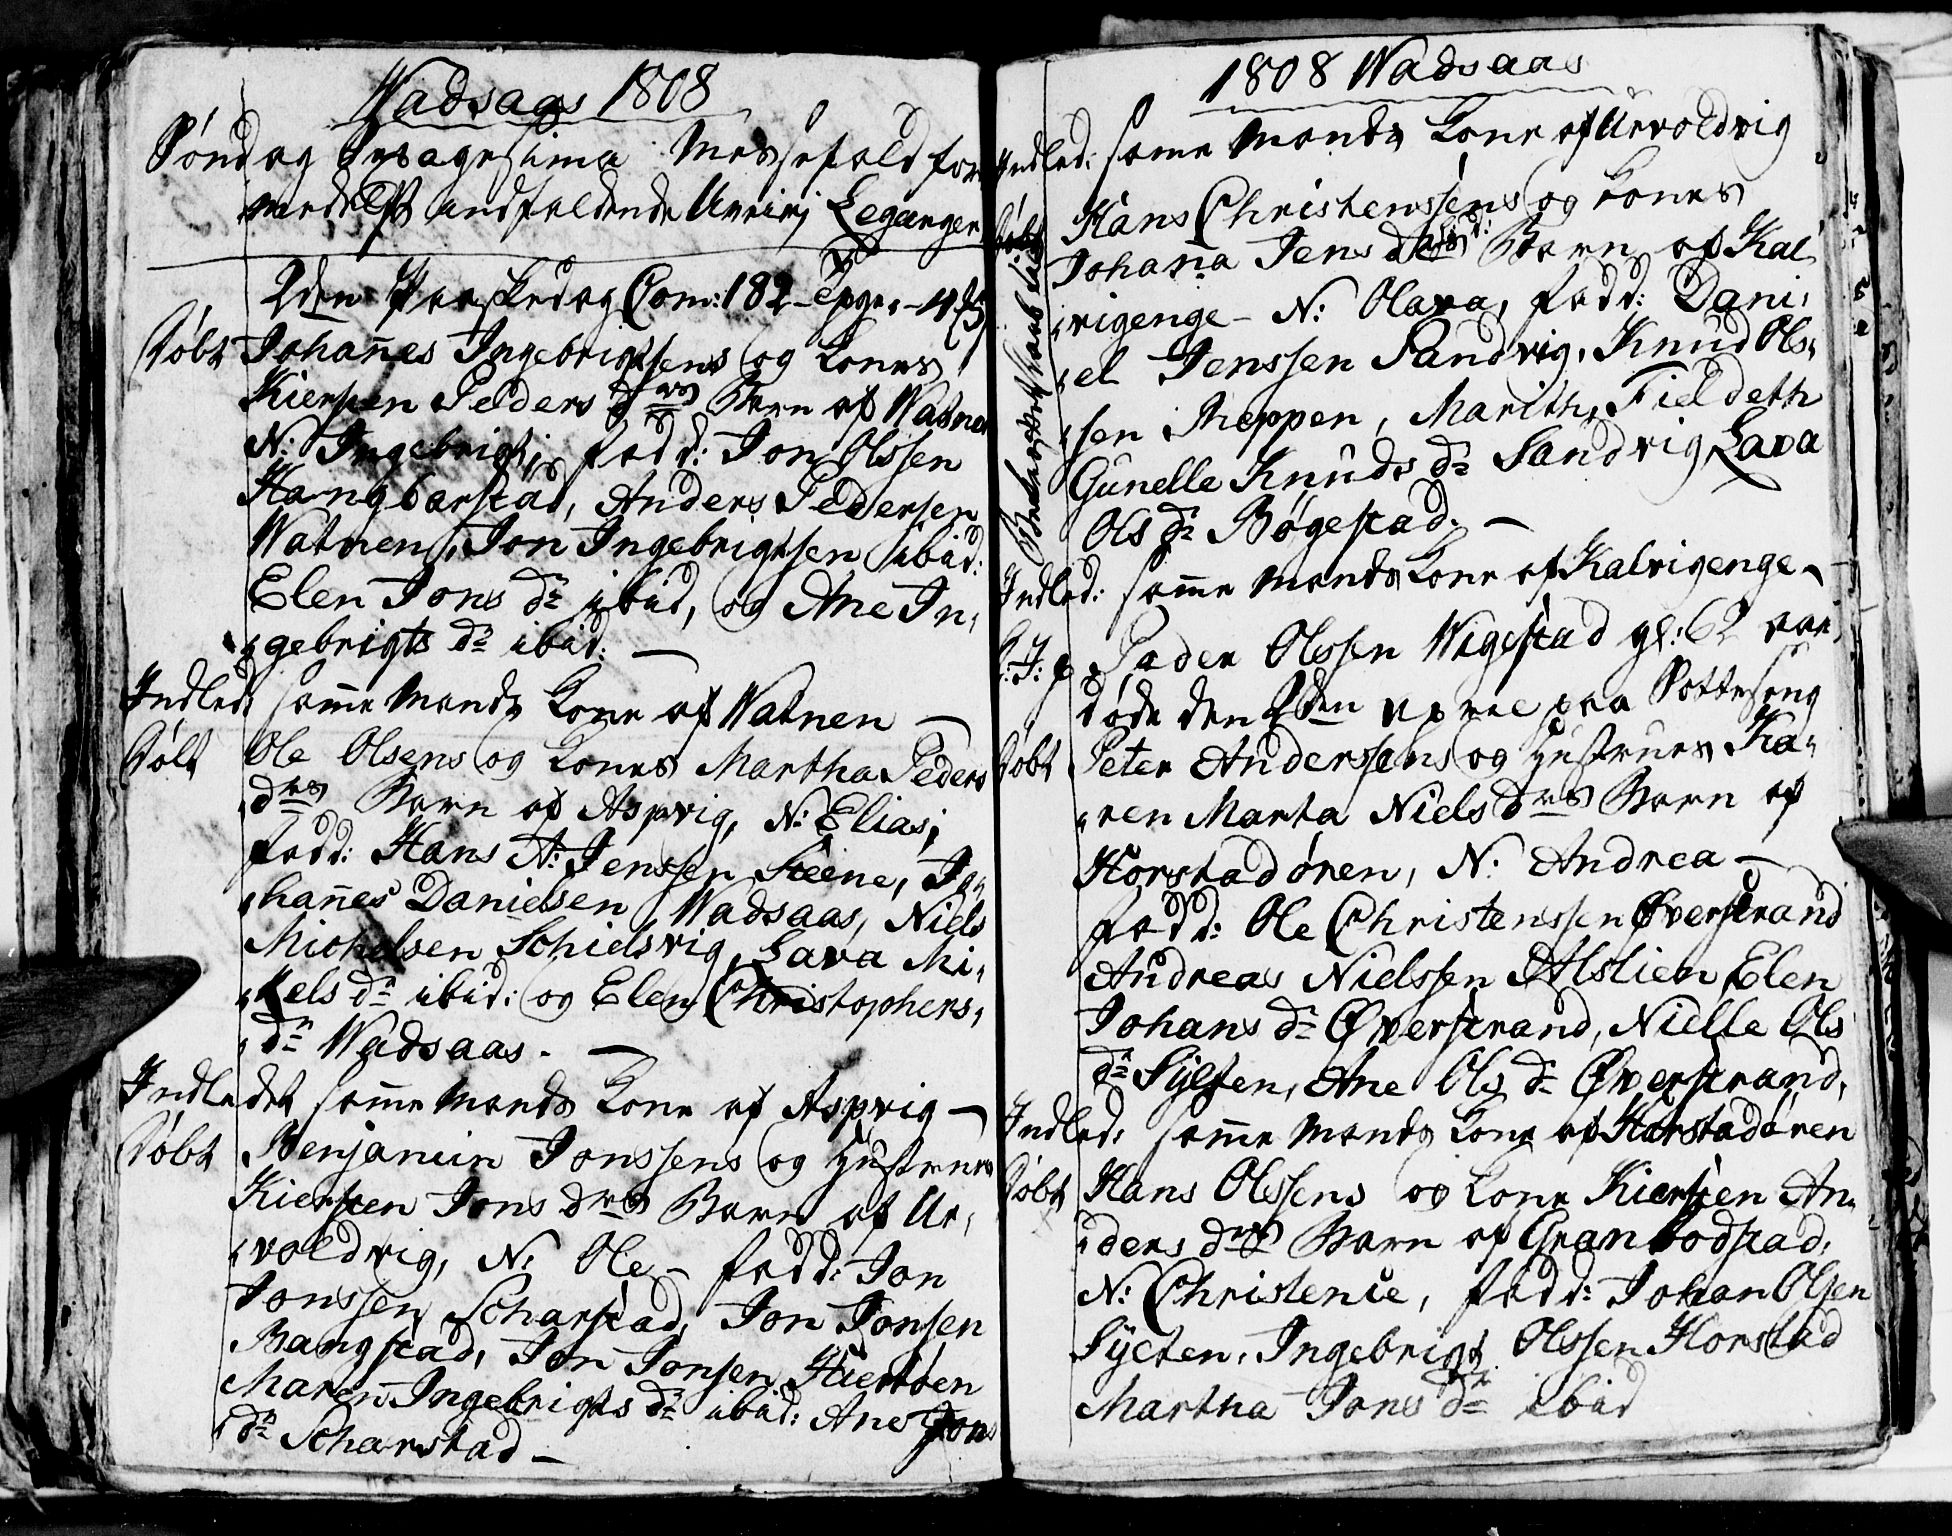 Wadsaas 1808
Søndag Sexagesima Messefald for
medelst indfaldende Uveirs
2den Paaskedag Com: 182
Døbt Johannes Ingebrigtsens og Kones
Kiersten Peders drs Barn af Watnen
N: Ingebrigt, fadd: Jon Olssen
Hangbarstad, Anders Pedersen
Watnen, Jon Ingebrigtsen ibid:
Elen Jons dr ibid, og Ane In-
gebrigts dr ibid: —
Indled: samme Mands Kone af Watnen —
Døbt Ole Olsens og Kones Martha Peders
drs Barn af Aspvig, N: Elias,
fadd: Hans A: Jenssen Steene, Jo-
hannes Danielsen Wadsaas, Niels
Michelsen Schielsvig, Lava Mi-
kels dr ibid: og Elen Christophers-
dr Wadsaas. —
Indledet samme Mands Kone af Aspvig —
Døbt Benjamin Jonssens og Hustrues
Kiersten Jons drs Barn af Ur-
voldvig, N: Ole — fadd: Jon
Jonssen Scharstad, Jon Jonsen
Bangstad, Jon Jonsen
Maren Ingebrigts dr ibid: Ane Jons
dr Scharstad —
1808 Wadsaas
Indled: samme Mands Kone af Urvoldvig
Døbt Hans Christenssens og Kones
Johana Jens drs Barn af Kal-
vigenge — N: Olava, fadd: Dani-
el Jenssen Sandvig, Knud Ols-
sen Reppen, Marith Fieldeth
Gunelle Knuds dr Sandvig Lava
Ols dr Bøgestad. —
Indled: samme Mands Kone af Kalvigenge —
Peder Olssen Wigestad gl: 62 aar,
døde den 2den April paa Sotteseng
Døbt Peter Anderssens og Hustrues Ka-
ren Marta Niels drs Barn af
Horstadøren, N: Andrea —
fadd: Ole Christenssen Øverstrand
Andreas Nielssen Alslien, Elen
Johans dr Øverstrand, Nielle Ols
dr Sylten, Ane Ols dr Øverstrand,
Indled: samme Mands Kone af Horstadøren
Døbt Hans Olssens og Kone Kiersten An-
ders drs Barn af Granbodstad,
N: Christence, fadd: Johan Olsen
Sylten, Ingebrigt Olssen Horstad
Martha Jons dr ibid